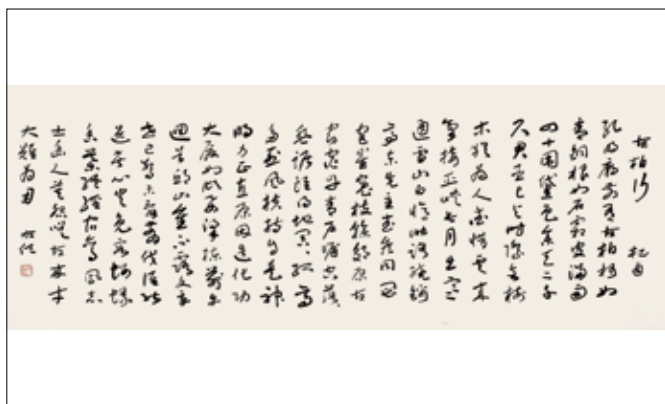 古柏行 杜甫
孔明廟前有古柏柯如
青銅根如石霜皮溜雨
四十圍黛色參天二千
尺君臣已與時際會樹
木猶為人愛惜雲來
氣接巫峽長月出寒
通雪山白憶昨路繞錦
亭東先主武侯同閟
宮崔嵬枝幹郊原古
窈窕丹青戶牖空落
落盤踞雖得地冥冥孤高
多烈風扶持自是神
明力正直原因造化功
大廈如傾要梁棟萬牛
迴首丘山重不露文章
世已驚未辭翦伐誰能
送苦心豈免容螻蟻
香葉終經宿鸞鳳志
士幽人莫怨嗟古來材
大難為用